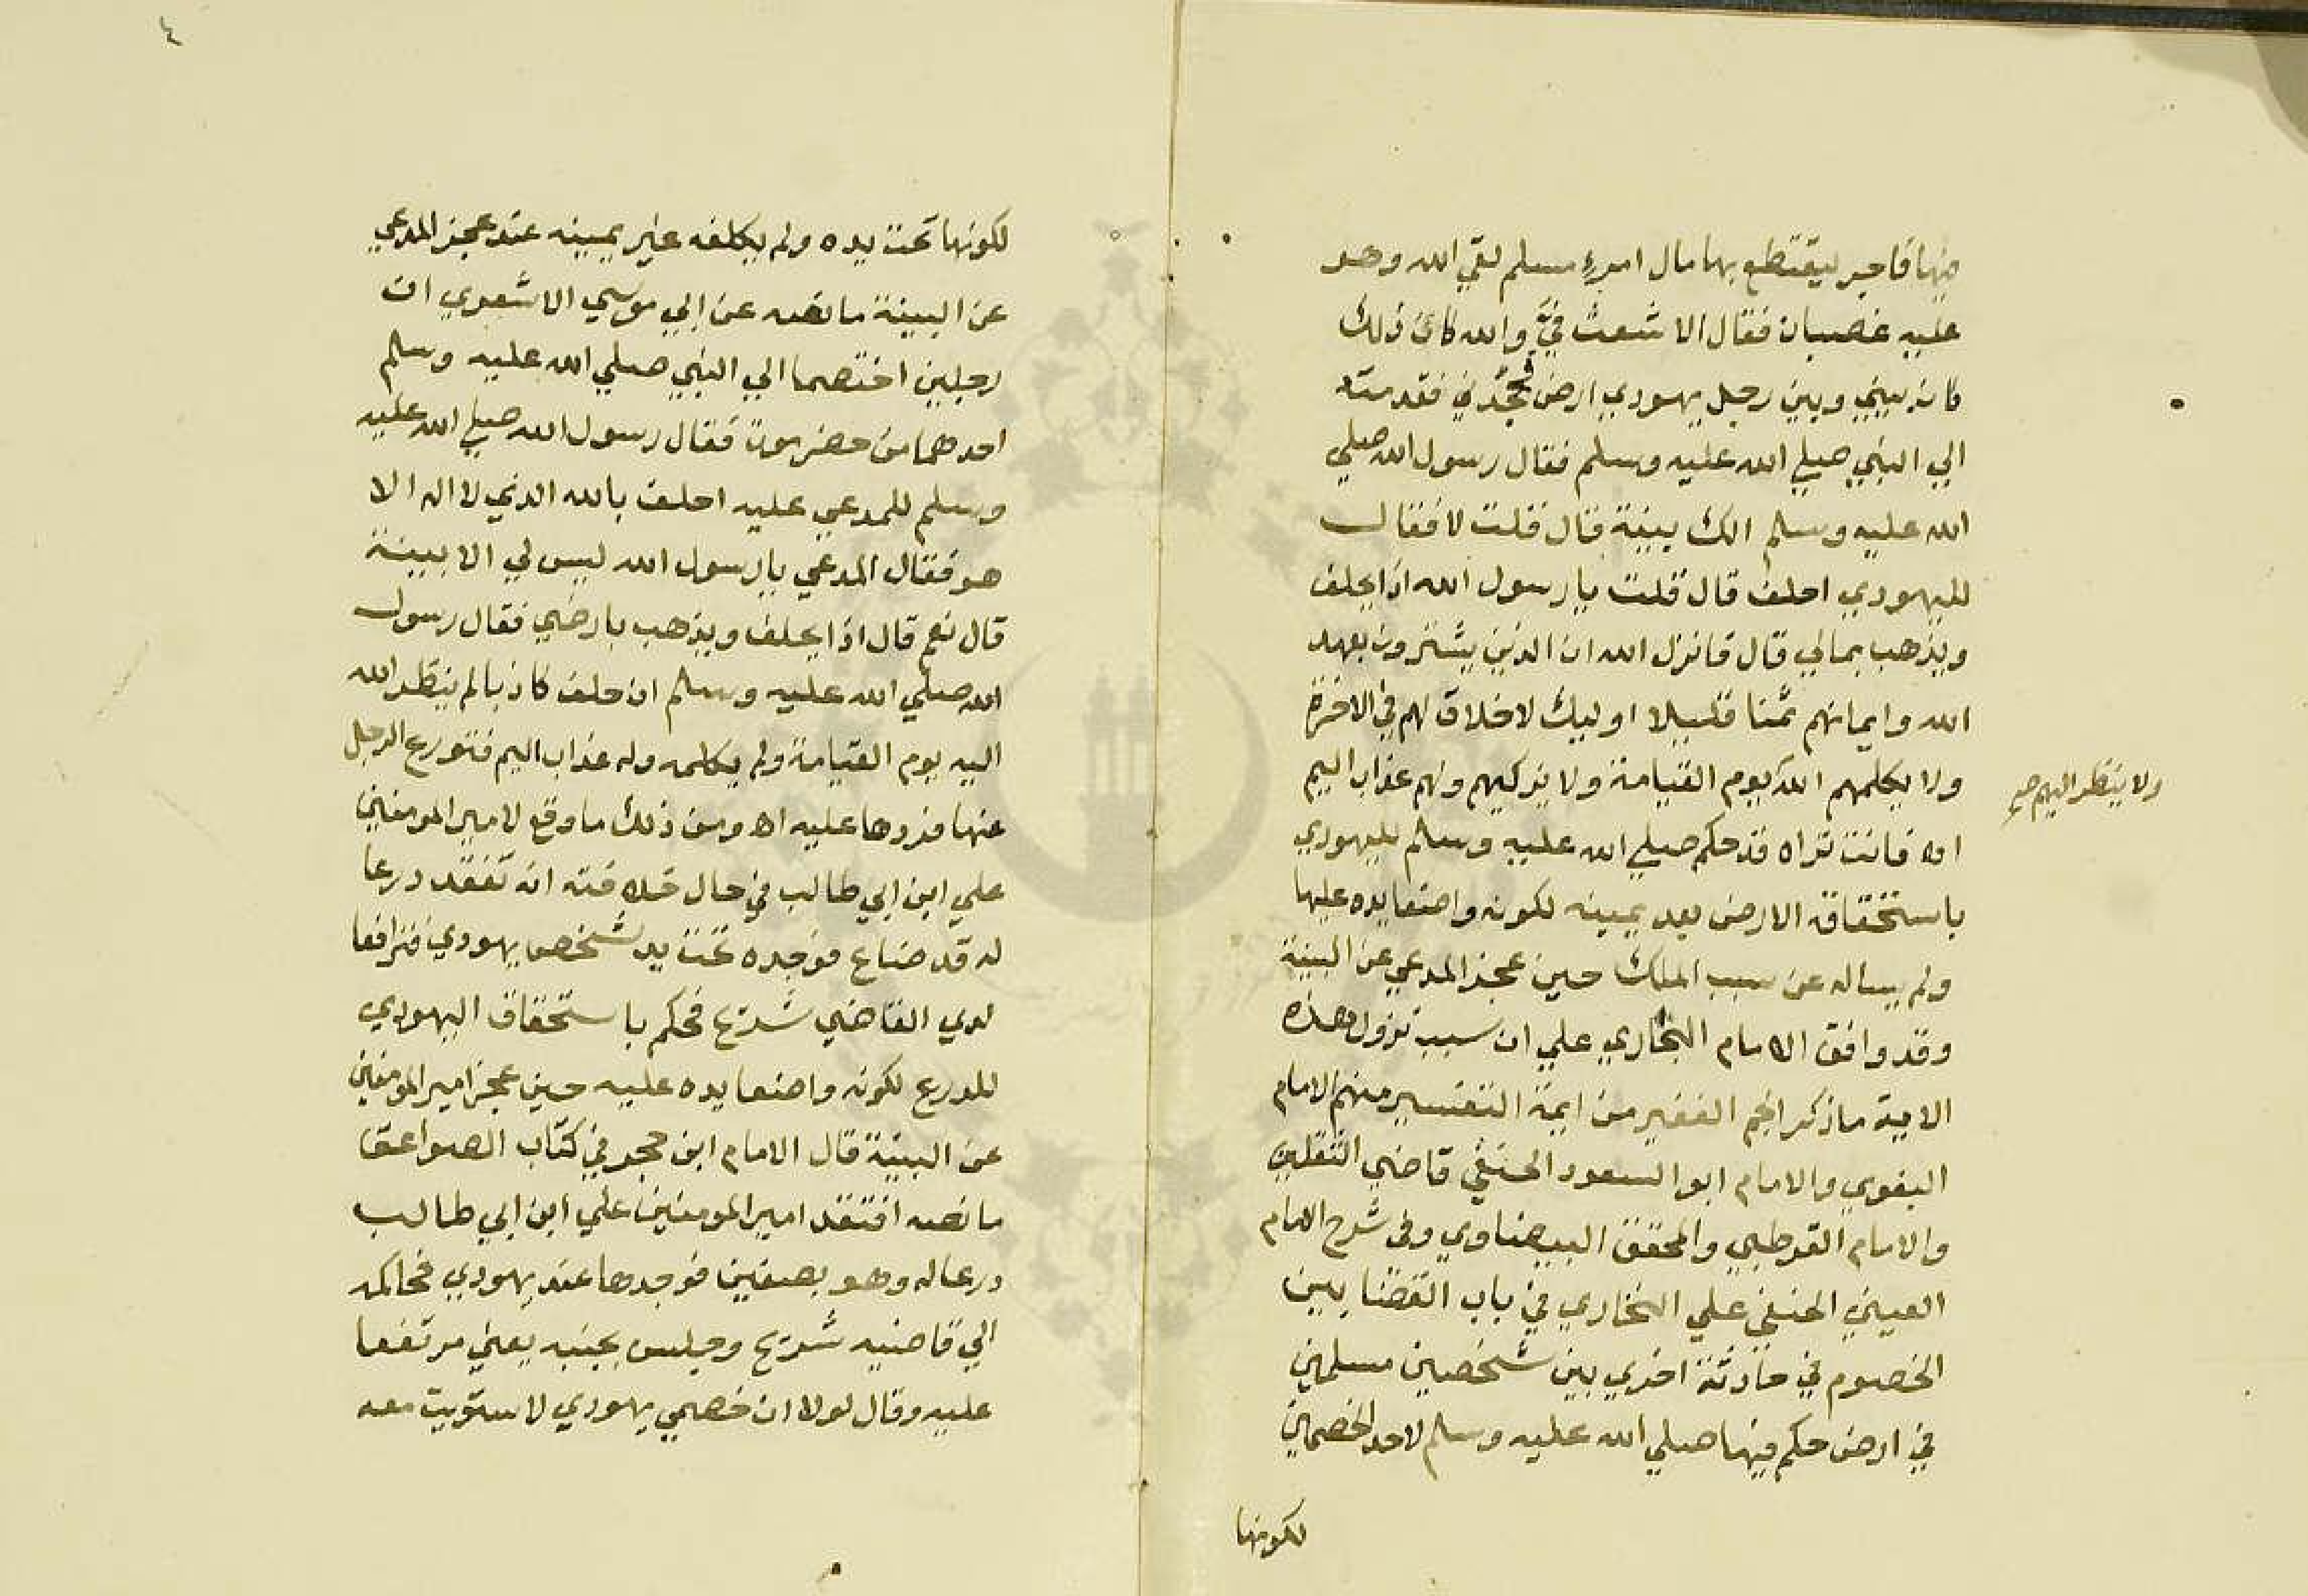 فيها فاجر ليقتطع بها مال امرئ مسلم لقي الله وهو
عليه غضبان فقال الاشعث فيَّ والله كان ذلك
كان بيني وبين رجل يهودي ارض فجحدني فقدمته
الي النبي صلي الله عليه وسلم فقال رسول الله صلي
الله عليه وسلم الك بينة قال قلت لا فقال
لليهودي احلف قال قلت يا رسول الله اذا يحلف
ويذهب بمالي قال فانزل الله ان الذين يشترون بعهد
الله وايمانهم ثمنا قليلا اوليك لا خلاق لهم في الاخرة
ولا يكلمهم الله يوم القيامة ولا يزكيهم ولهم عذاب اليم
ولا ينظر اليهم صح
اه فانت تراه قد حكم صلي الله عليه وسلم لليهودي
باستحقاق الارض بعد يمينه لكونه واضعا يده عليها
ولم يساله عن سبب الملك حين عجز المدعي عن البينة
وقد وافق الامام البخاري علي ان سبب نزول هذه
الاية ما ذكر الجم الغفير من ايمة التفسير منهم الامام
البغوي والامام ابو السعود الحنفي قاضي الثقلين
والامام القرطبي والمحقق البيضاوي وفي شرح الامام
العيني الحنفي علي البخاري في باب القضا بين
الخصوم في حادثة اخري بين شخصين مسلمين
في ارض حكم فيها صلي الله عليه وسلم لاحد الخصمين
لكونها
٤
لكونها تحت يده ولم يكلفه غير يمينه عند عجز المدعي
عن البينة ما نصه عن ابي موسي الاشعري ان
رجلين اختصما الي النبي صلي الله عليه وسلم
احدهما من حضرموت فقال رسول الله صلي الله عليه
وسلم للمدعي عليه احلف بالله الذي لا اله الا
هو فقال المدعي يا رسول الله ليس لي الا بيينة
قال نعم قال اذا يحلف ويذهب بارضي فقال رسول
الله صلي الله عليه وسلم ان حلف كاذبا لم ينظر الله
اليه يوم القيامة ولم يكلمه وله عذاب اليم فتورع الرجل
عنها فردها عليه اه ومن ذلك ما وقع لامير المومنين
علي ابن ابي طالب في حال خلافته انه تفقد درعا
له قد ضاع فوجده تحت يد شخص يهودي فترافعا
لدي القاضي شريح فحكم باستحقاق اليهودي
للدرع لكونه واضعا يده عليه حين عجز امير المومنين
عن البينة قال الامام ابن حجر في كتاب الصواعق
ما نصه افتقد امير المومنين علي ابن ابي طالب
درعا له وهو بصفين فوجدها عند يهودي فحاكمه
الي قاضيه شريح وجلس بجنبه يعني مرتفعا
عليه وقال لولا ان خصمي يهودي لاستويت معه